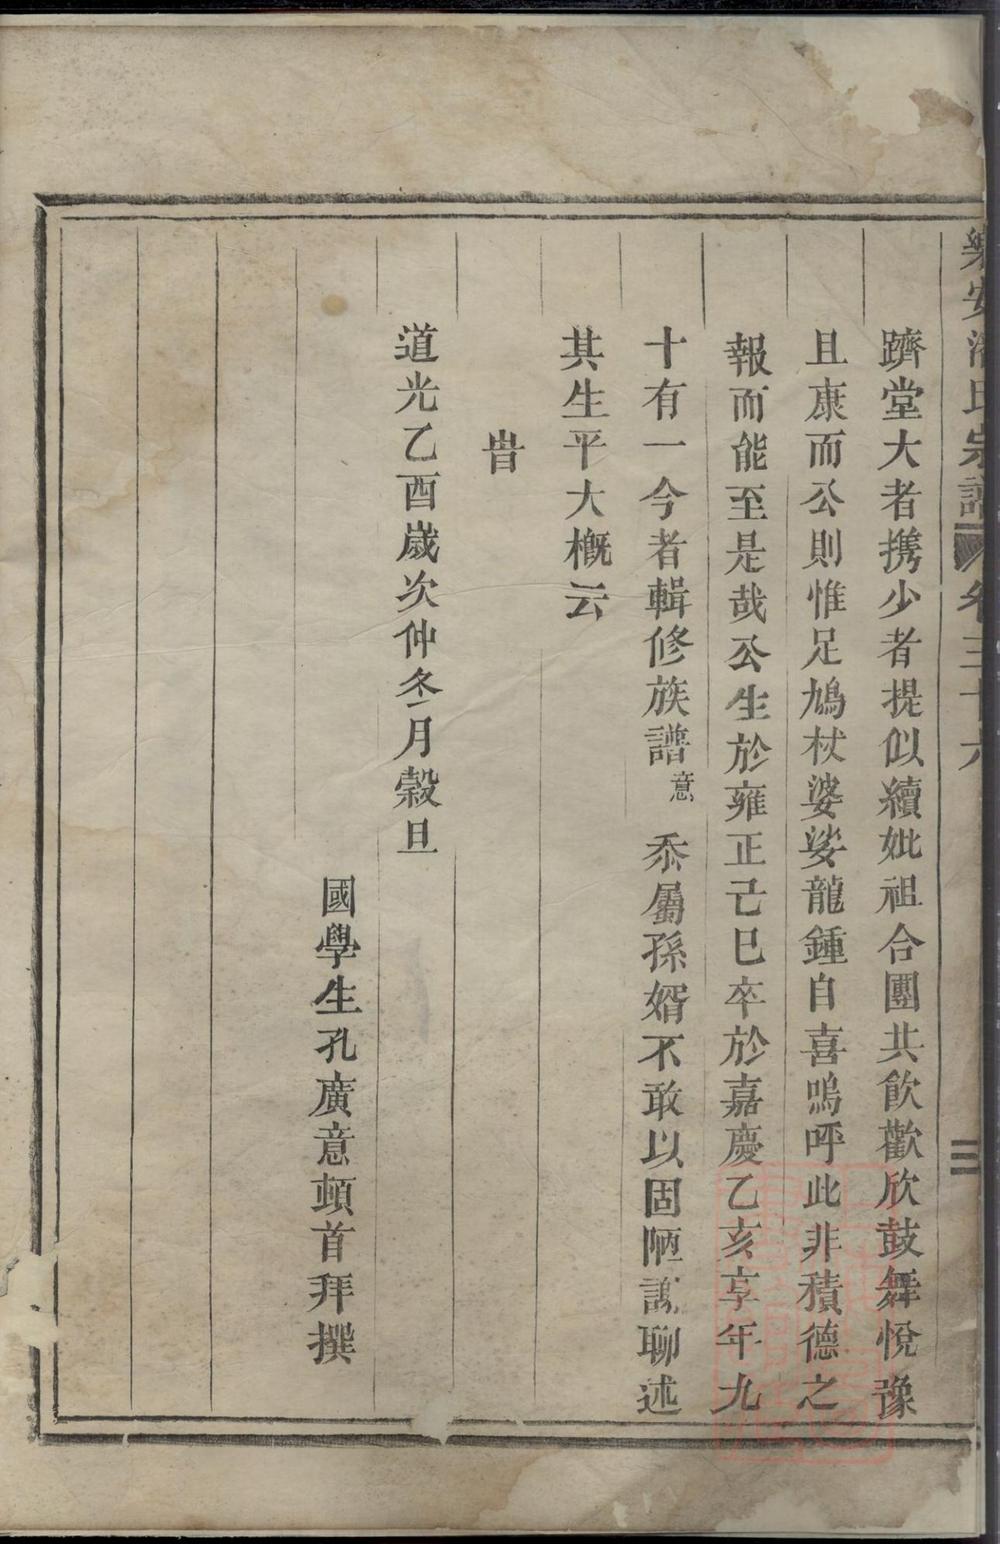 樂安 氏宗譜 卷三十六 三
躋堂大者携少者提似續妣祖合團共飲歡欣鼓舞悅豫
且康而公則惟足鳩杖婆娑龍鍾自喜嗚呼此非積德之
報而能至是哉公生於雍正己巳卒於嘉慶乙亥享年九
十有一今者輯修族譜意忝屬孫婿不敢以固陋謝聊述
其生平大概云
旹
道光乙酉歲次仲冬月穀旦
國學生孔廣意頓首拜撰